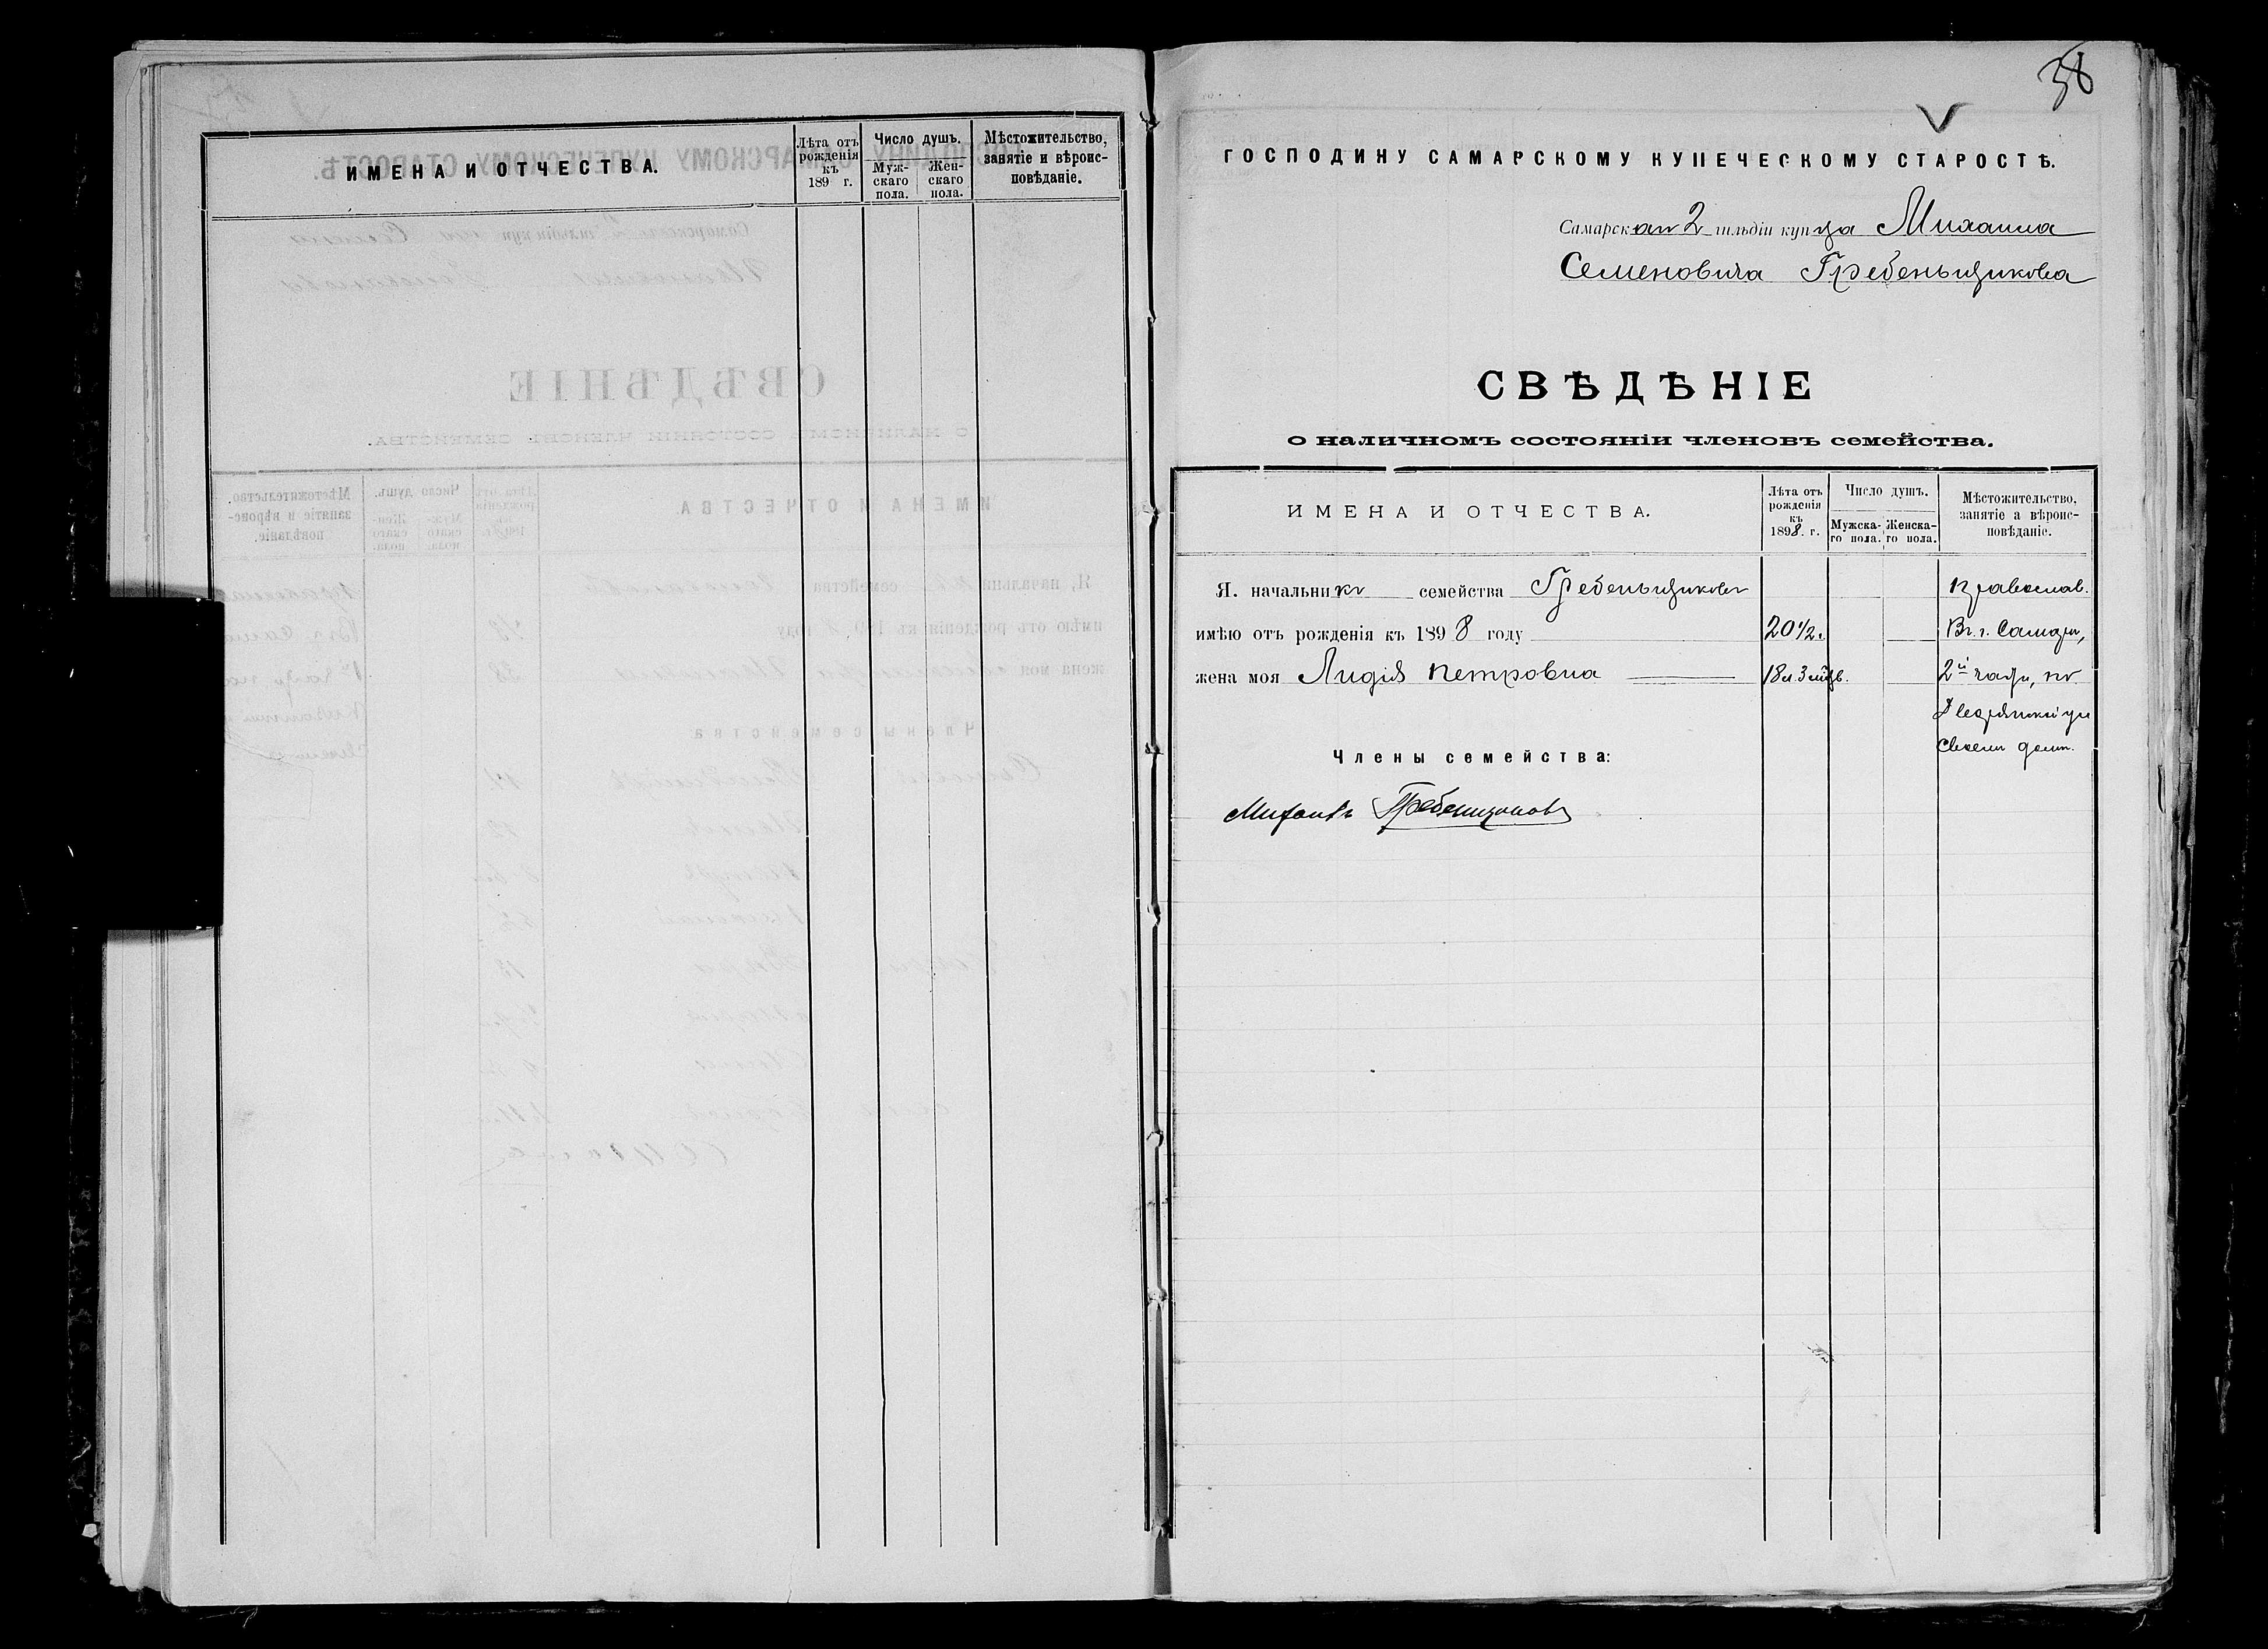 ИМЕНА И ОТЧЕСТВА.
Лѣта отъ рожденія къ 189 г.
Число душъ.
Муж-скаго пола.
Жен-скаго пола.
Мѣстожительство, занятіе и вѣроис-повѣданіе.
38
ГОСПОДИНУ САМАРСКОМУ КУПЕЧЕСКОМУ СТАРОСТѢ.
Самарскаго 2 гильдіи купца Михаила
Семеновича Гребеньщикова
СВѢДѢНІЕ
о наличномъ состояніи членовъ семейства.
ИМЕНА И ОТЧЕСТВА.
Лѣта отъ рожденія къ 1898. г.
Число душъ.
Мужска-го пола.
Женска-го пола.
Мѣстожительство, занятіе а вѣроис-повѣданіе.
Я. начальникъ семейства Гребеньщиковъ православ.
имѣю отъ рожденія къ 1898 году 20 1/2. Въ г. Самарѣ,
жена моя Лидія Петровна 18 л. 3 мѣс. 2й части, по
Дворянской ул
своемъ домѣ.
Члены семейства:
Михаилъ Гребенщиковъ